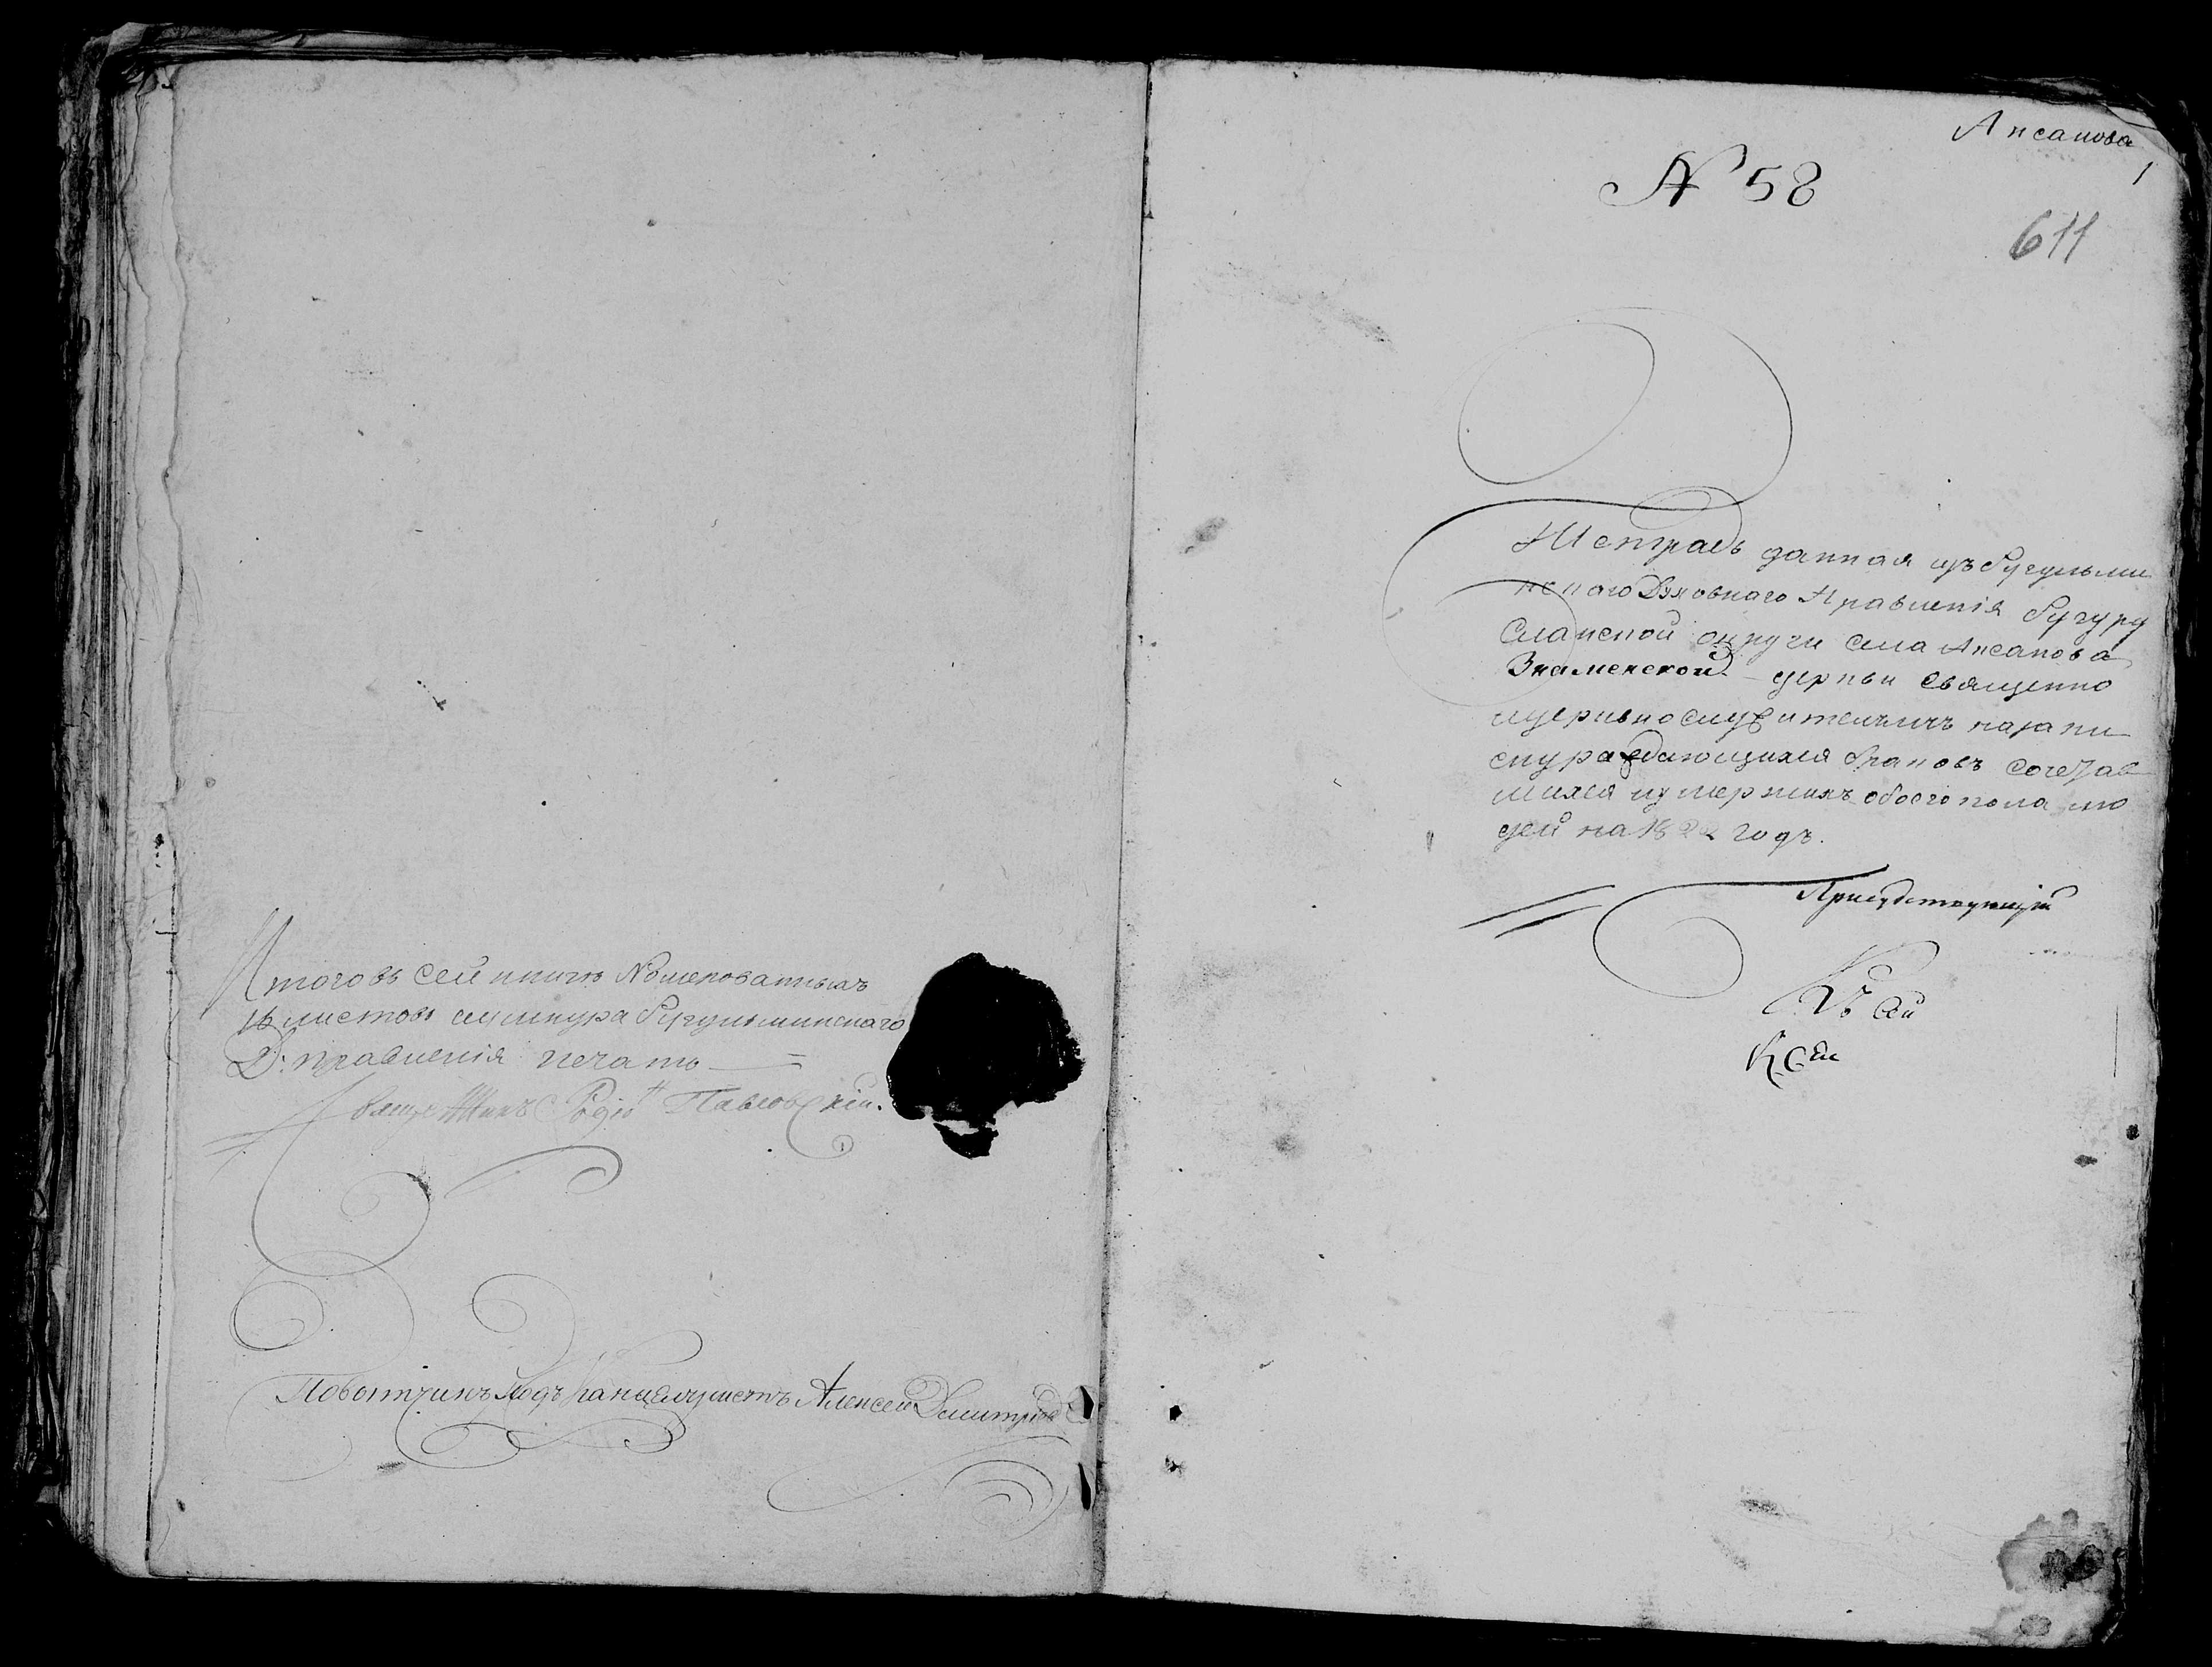 Итого въ сей книгѣ Номерованныхъ
16 листовъ аушнура Бугульминскаго
Д: правленія печать
Священникъ Родіо Павловскій.
Повытчикъ Подъ Канцеляристъ Алексей Димитріев
Аксакова
1
№ 58
611
Тетрадь данная изъ Бугульми
нскаго Духовнаго Правленія Бугуру
сланской округи села Аксакова
Знаменской церкви священно
ицерквнослужителямъ назапи
ску раждающихся браковъ сочетав
шихся иумершихъ обоего пола лю
дей на 1822 годъ.
Присудствующій
Къ сей